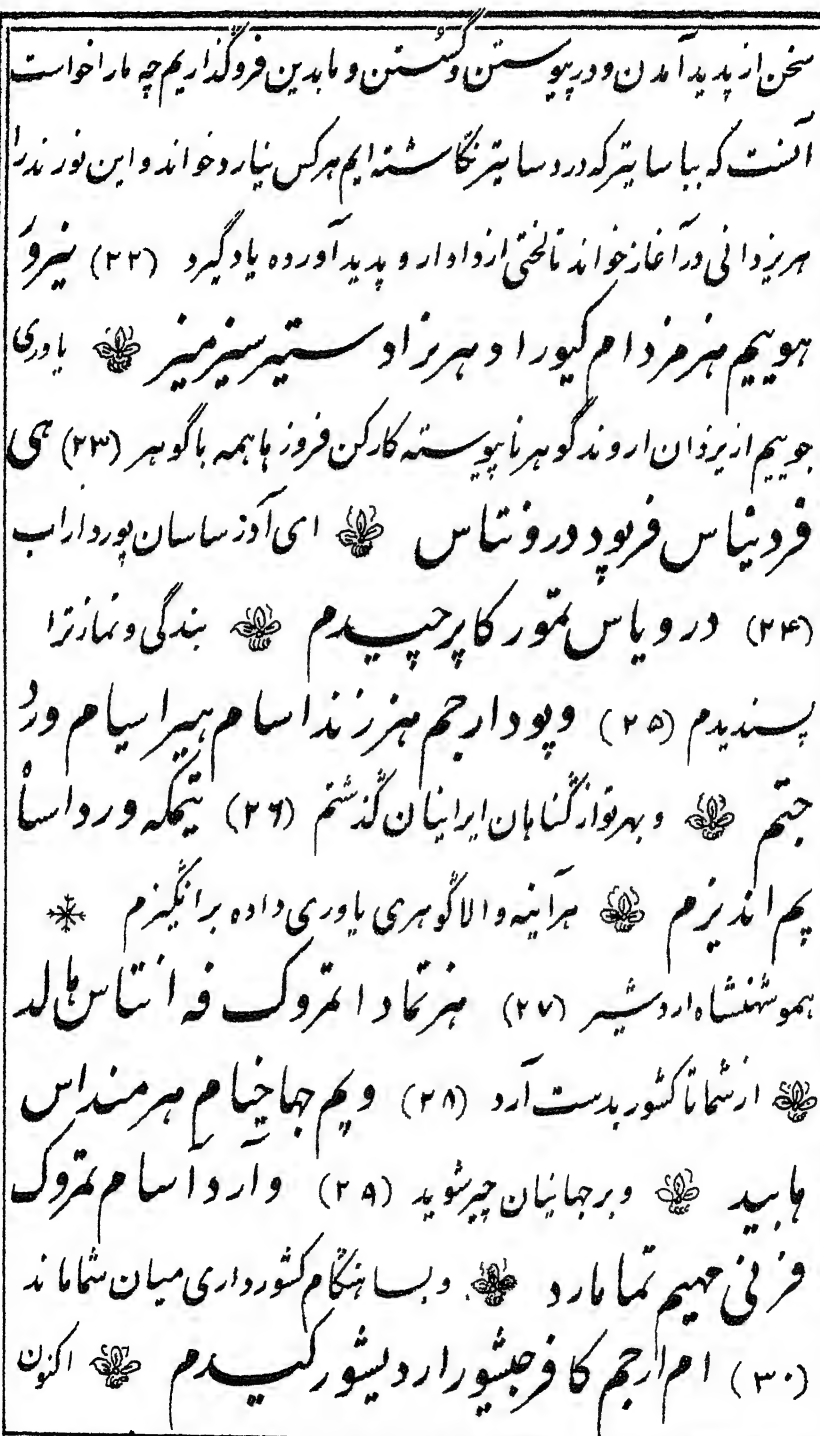 سخن از پدید آمدن و در پیوستن و گسستن و ما بدین فروگذاریم چه ما را خواست
آنست که بباساتیر که در دساتیر نگاشته ایم هر کس نیارد خواند و این نور ندرا
هر یزدانی در آغاز خواند تا لختی از دادار و پدید آورده یاد گیرد (۲۲) نیروَ
هوییم هنر مزدام کیورا د هر بزاد ستیر سیز میز یاوری
جوییم از یزدان اروند گوهر نا پیوسته کارکن فروز با همه با گوهر (۲۳) هی
فردنیاس فرپود درونتاس ای آذر ساسان پور داراب
(۲۴) در و یاس تمور کاپرچپیدم بندگی و نماز ترا
پسندیدم (۲۵) و پود ارجم هنر زنداسام هیراسیام ورُد
جتم و بهر تو از گناهان ایرانیان گذشتم (۲۶) تیمکه ور داسا
پم اندیزم هر آینه والا گوهری یاوری داده بر انگیزم
همو شهنشاه اردشیر (۲۷) هنر تماد ا تمروک فه انتاس هالد
از شما تا کشور بدست آرد (۲۸) و پم جهاخیام هرمنداس
هابید و بر جهانیان چیر شوید (۲۹) و ارد آسام تمروک
فرنی مهیم تما مارد و بسا هنگام کشورداری میان شما ماند
(۳۰) ام ارجم کا فرجیشور اردیشور کیدم اکنون